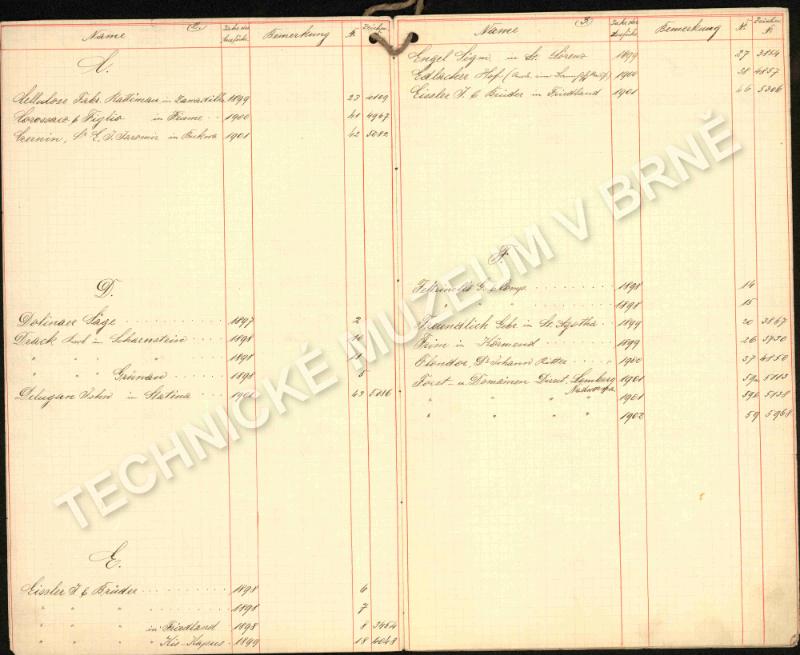 Name Jahr der Ausfuhr Bemerkung N. Zeichn. N.
C.
Cellulose Fabr. Hatiman in 1899 23 4109
Corossacz & Figlio in Fiume 1900 41 4967
Czernin, Dr. E. J. Jaromir in 1901 62 5082
D.
Dolinaer Säge 1897 2
Drack Karl in Scharnstein 1898 10
" " " 1898 11
" " Grünau 1898 5
Delugan John in Slatina 1900 43 5016
E.
Eissler J. & Brüder 1898 6
" " " 1898 7
" " " in Friedland 1898 8 3484
" " " " Kis-Kapus 1899 18 4048
Name Jahr der Ausfuhr Bemerkung N. Zeichn. N.
Engel Sigm. in St. Lorenz 1899 27 3864
Edlacher Hof 1900 38 4857
Eissler J. & Brüder in Friedland 1901 46 5306
F.
Feltrinelli G. & Comp. 1898 14
" " " 1898 15
Freundlich Gebr. in St. Agatha 1899 20 3867
Frim in Körmend 1899 26 3930
Flondor, Dr. Johann Ritter 1900 37 4850
Forst- u. Domänen Direct. Lemberg 1901 59a 5113
Nadworna
" " " 1901 59b 5138
" " " 1902 59 5968
TECHNICKÉ MUZEUM V BRNĚ